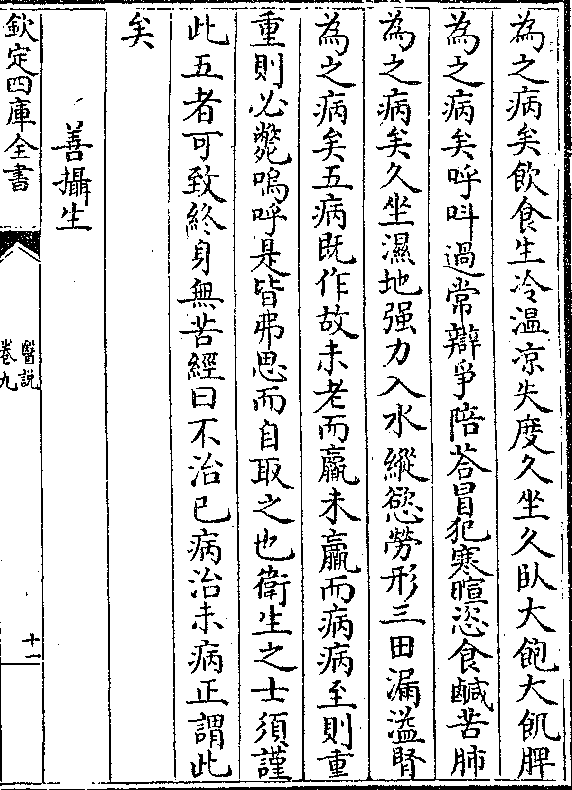 為之病矣飲食生冷温凉失度久坐久卧大飽大飢脾
為之病矣呼呌過常辯爭陪荅冒犯寒暄恣食鹹苦肺
為之病矣久坐濕地强力入水縱慾勞形三田漏溢腎
為之病矣五病既作故未老而羸未羸而病病至則重
重則必斃嗚呼是皆弗思而自取之也衛生之士須謹
此五者可致終身無苦經曰不治已病治未病正謂此
矣
善攝生
欽定四庫全書
醫説
卷九
十一